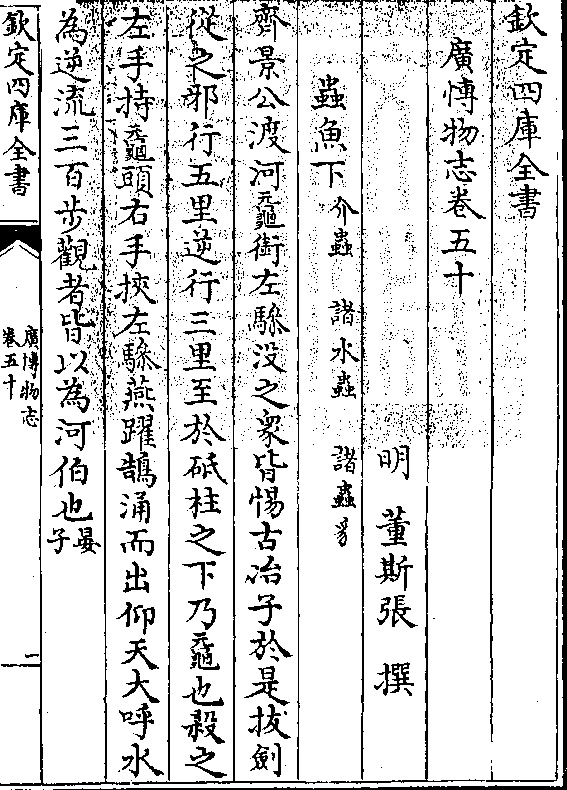 欽定四庫全書
廣博物志卷五十
明 董斯張 撰
蟲魚下 介蟲 諸水蟲 諸蟲豸
齊景公渡河黿銜左驂没之衆皆惕古冶子於是拔劍
從之邪行五里逆行三里至於砥柱之下乃黿也殺之
左手持黿頭右手挾左驂燕躍鵠涌而出仰天大呼水
為逆流三百步觀者皆以為河伯也晏子
欽定四庫全書
廣博物志
卷五十
一